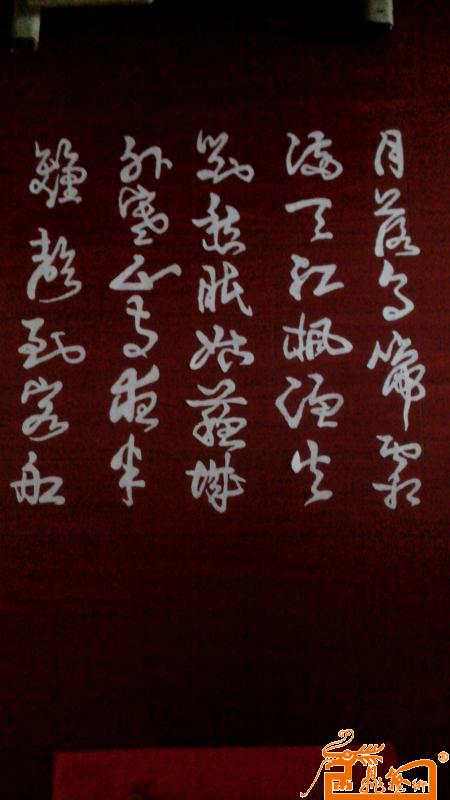 月落乌啼霜
满天江枫渔火
对愁眠姑苏城
外寒山寺夜半
鐘聲到客船